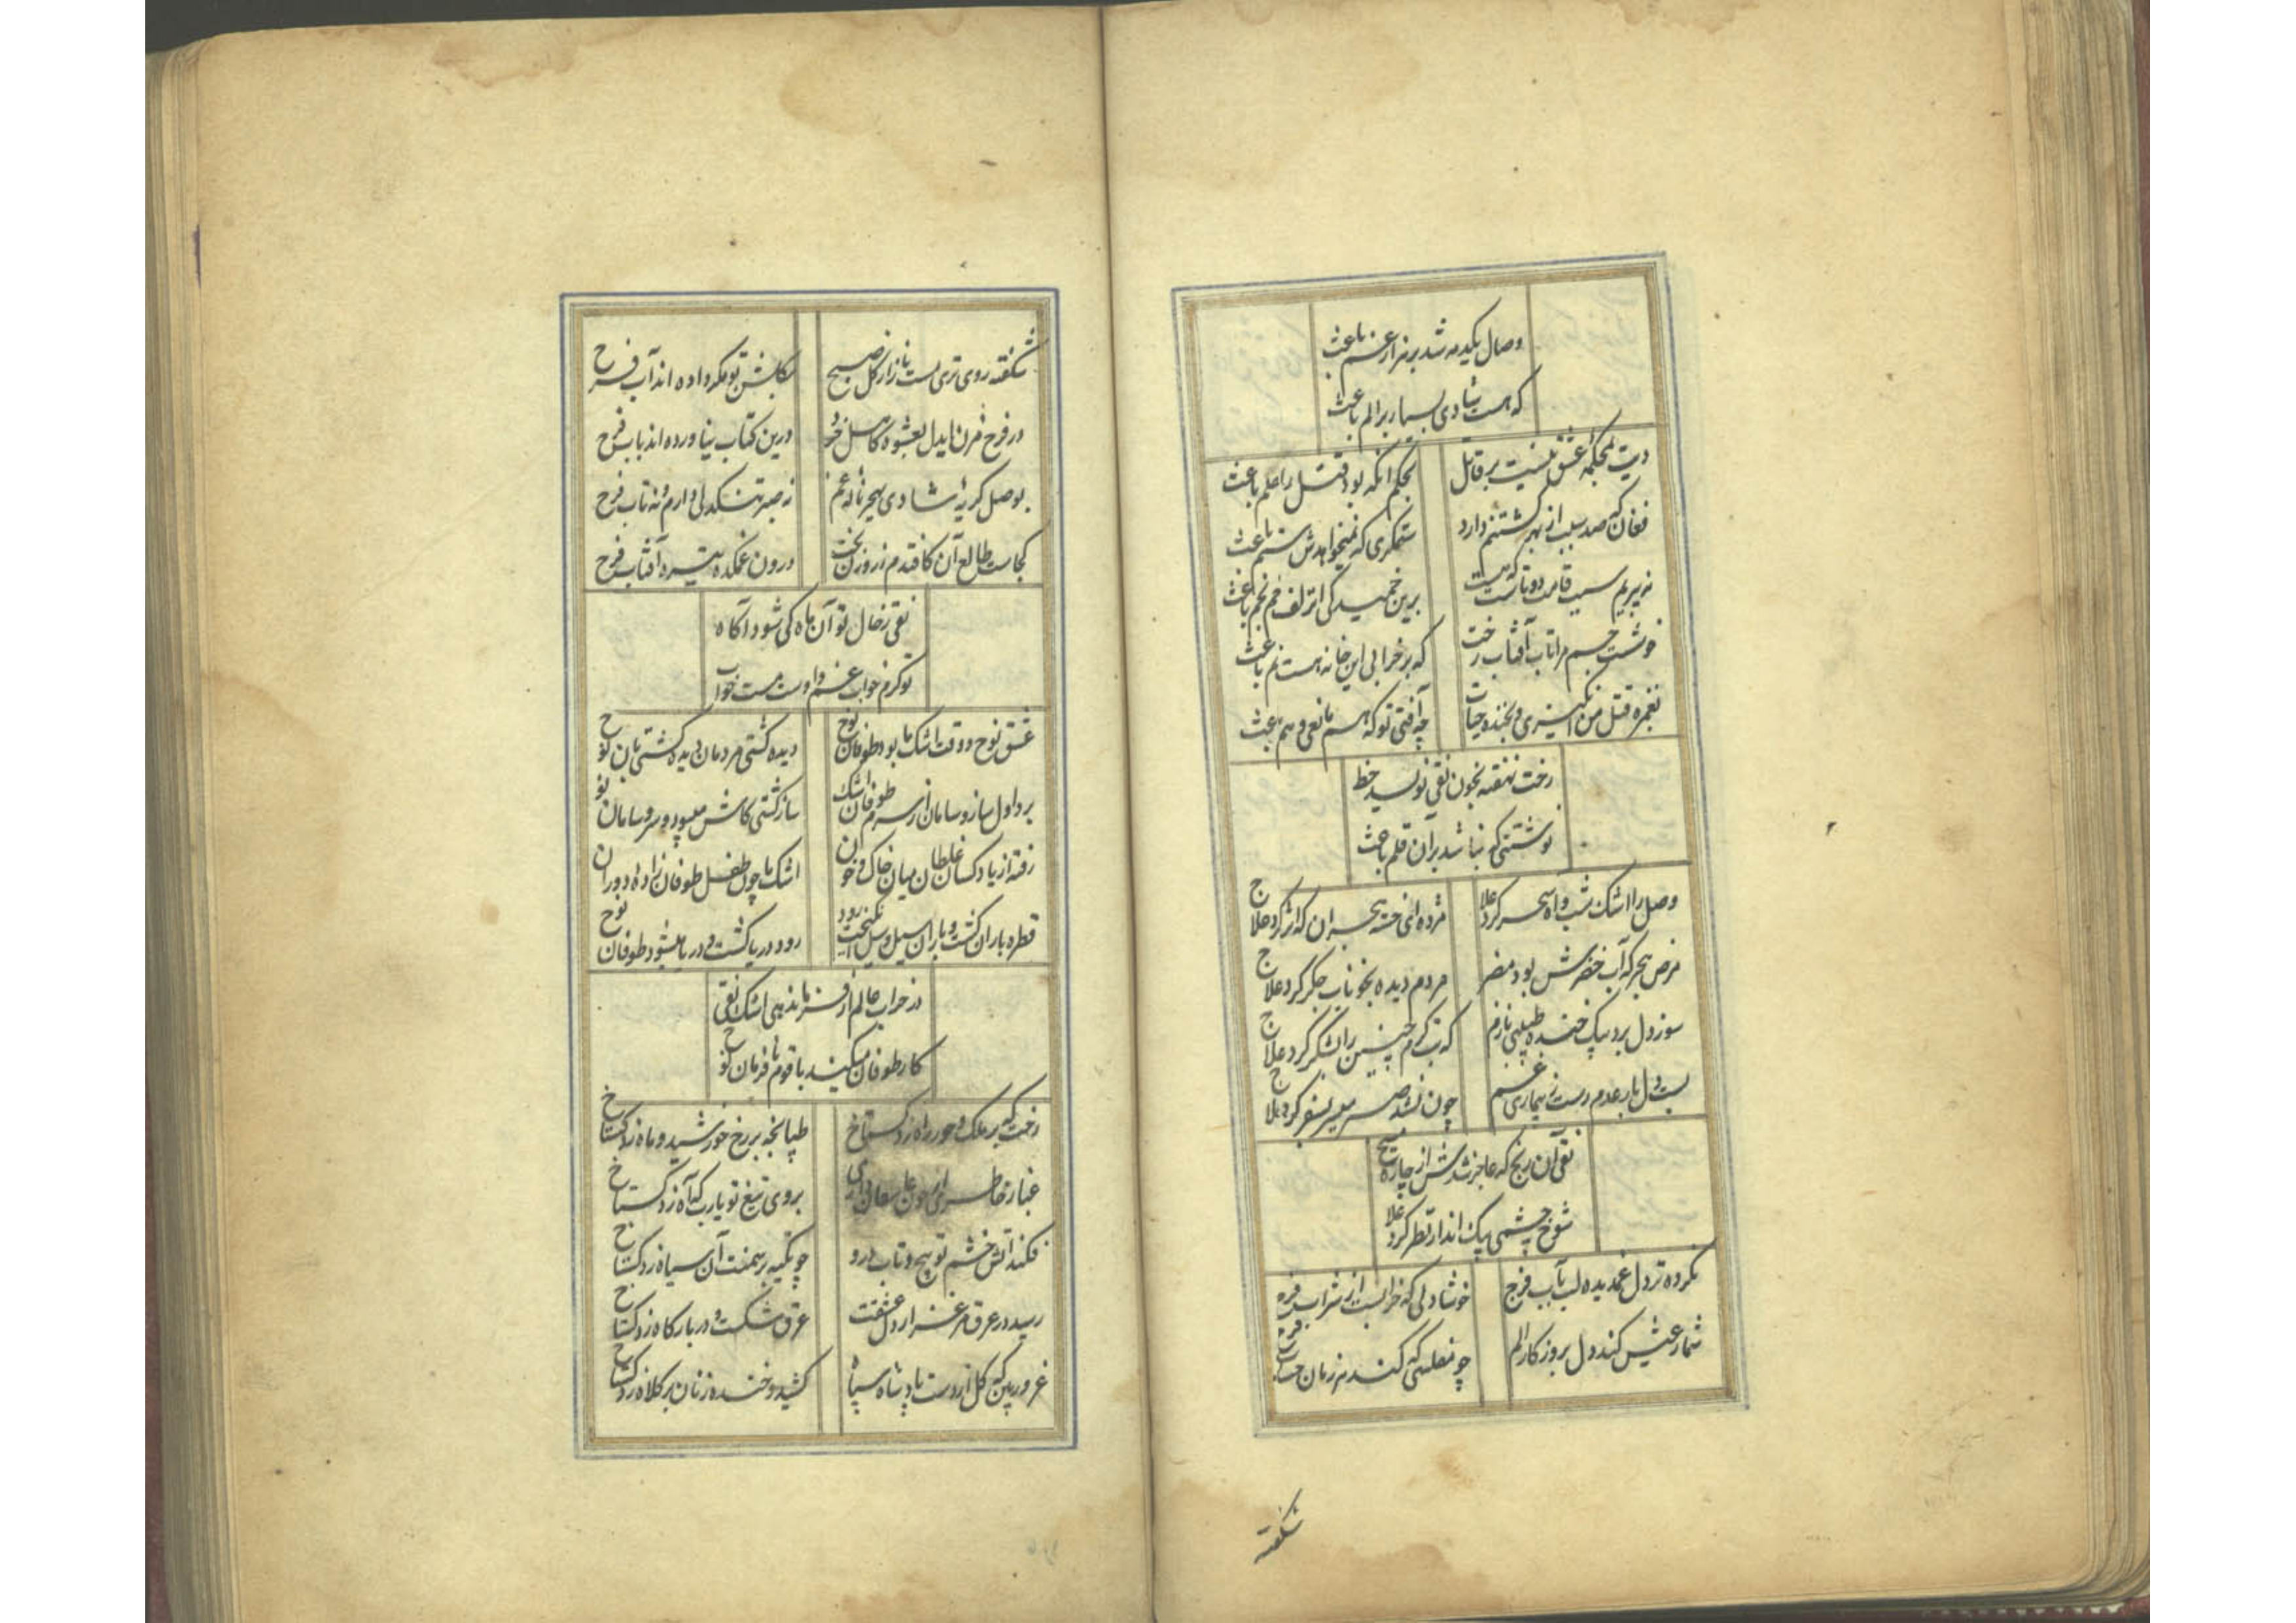 وصال یکدمه شد بر هزار غم باعث
که هست شادی بسیار بر الم باعث
دیت بمحکمه عشق نیست بر قاتل بحکم آنکه بود قتل را علم باعث
فغان که صد سبب از بهر کشتنم دارد ستمگری که نمیخواهدش ستم باعث
سبب قامت دوتاست که هست برین خمیدگی از زلف خم بخم باعث
خوشست جسم مرا تاب آفتاب رخت که بر خرابی این خانه هست نم باعث
بغمزه قتل من انگیزی و بخنده حیات چه آفتی تو که هم مانعی و هم باعث
رخت نهفته بخون نقی نویسد خط
نوشتنی که نباشد بر آن قلم باعث
وصل را اشک شب و آه سحر کرد علاج مژده ای خسته هجران که اثر کرد علاج
مرض هجر که آب خضرش بود مضر مردم دیده بخوناب جگر کرد علاج
سوز دل برد بیک خنده طبیبی نازم که تب گرم چنین را بشکر کرد علاج
بست دل بار عدم دست ز بیماری غم چون نشد صبر میسر بسفر کرد علاج
نقی آن رنج که عاجز شدش از چاره مسیح
شوخ چشمی بیک انداز نظر کرد علاج
نکرده تر دل غمدیده لب بآب فرح خوشا دلی که خرابست از شراب فرح
شمار عیش کند دل بروزگار الم چو مفلسی که کند هر زمان حساب فرح
شکفته
شکفته روی تری بست ناز از گل صبح مگر بگلشن تو داده اند آب فرح
در فرح مزن ایدل بعشوه کاهل خرد درین کتاب نیاورده اند باب فرح
بوصل گریه شادی بهجر ناله غم نه صبر تنگدلی دارم و نه تاب فرح
کجاست طالع آن کافتدم ز روزن بخت درون غمکده تیره آفتاب فرح
نقی ز حال تو آن ماه کی شود آگاه
تو گرم خواب غم و اوست مست خواب فرح
عشق نوح و وقت اشک ما بود طوفان نوح دیده کشتی مردمان دیده کشتی‌بان نوح
برد اول ساز و سامان از سرم طوفان اشک ساز کشتی کاش میبود و سر و سامان نوح
رفته از یاد کسان غلطان میان خاک و خون اشک ما چون طفل طوفان زاده دوران نوح
قطره باران گشت و باران سیل و سیل انگیخت رود رود دریا گشت و دریا میشود طوفان نوح
در خراب عالم از فرمان دهی اشک نقی
کار طوفان میکند با قوم نافرمان نوح
رخت که بر ملک و حور راه زد گستاخ طپانچه بر رخ خورشید و ماه زد گستاخ
غبار خاطر بروی تیغ تو یارب که آه زد گستاخ
فکند آتش خشم تو پیچ و تاب درو چو تکیه بر سمنت آن سیاه زد گستاخ
رسید در عرق شرم غنچه از دل عشقت عرق شکست و در بارگاه زد گستاخ
غرور بین که گل از دست پادشاه سپاه کشید و خنده زنان بر کلاه زد گستاخ